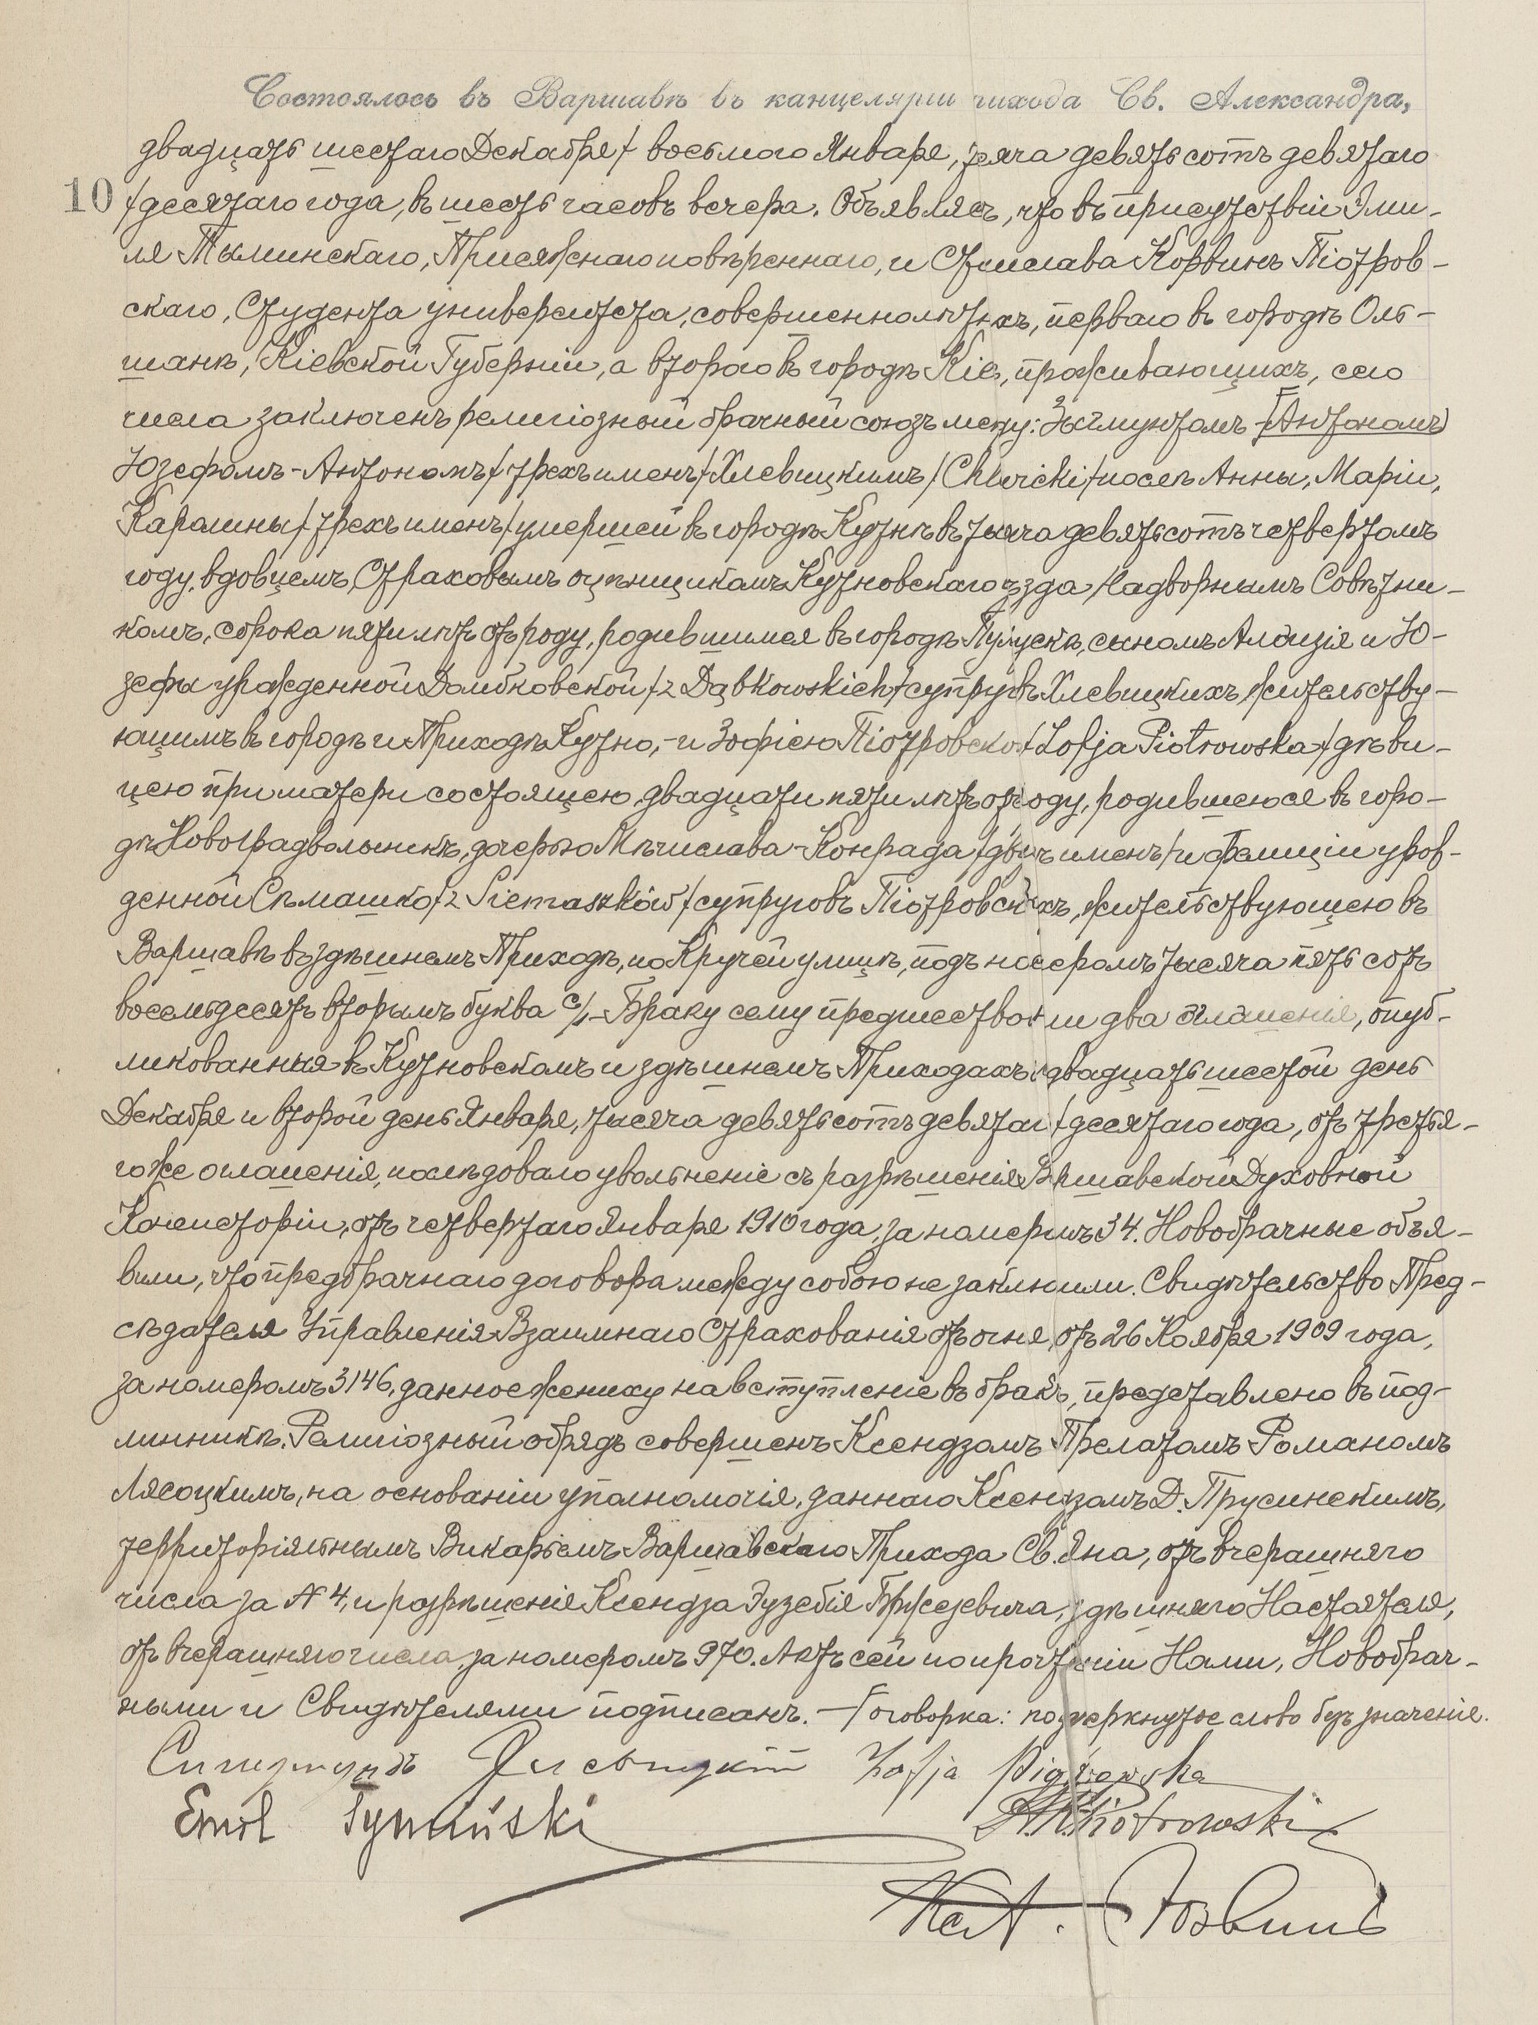 Состоялось въ Варшавѣ въ канцеляріи прихода Св. Александра,
двадцать шестаго Декабря / восьмого Января, тысяча девятьсотъ девятаго
10 / десятаго года, въ шесть часовъ вечера. Объявляемъ, что въ присутствіи Эми-
ля Тыминскаго, Присяжнаго повѣреннаго, и Станислава Корвинъ Піотров-
скаго, Студента университета, совершеннолѣтнихъ, перваго въ городѣ Оль-
шанѣ, Кіевской Губерніи, а второго въ городѣ Кіевѣ, проживающихъ, сего
числа заключенъ религіозный брачный союзъ между: Зыгмунтомъ-⌈Антономъ⌉
Юзефомъ-Антономъ / трехъ именъ / Хлевицкимъ / Chlewicki / послѣ Анны, Маріи,
Каролины / трехъ именъ / умершей въ городѣ Кутнѣ въ тысяча девятьсотъ четвертомъ
году, вдовцемъ, Страховымъ оцѣнщикомъ Кутновскаго уѣзда, Надворнымъ Совѣтни-
комъ, сорока пяти лѣтъ отъ роду, родившимся въ городѣ Пултускѣ, сыномъ Алоизія и Ю-
зефы урожденной Домбковской / z Dąbkowskich / супруговъ Хлевицкихъ, жительству-
ющимъ въ городѣ и Приходѣ Кутно, - и Зофіею Піотровскою / Zofja Piotrowska / дѣви-
цею при матери состоящею, двадцати пяти лѣтъ отъ роду, родившеюся въ горо-
дѣ Новоградволынскѣ, дочерью Мѣчислава-Конрада / двухъ именъ / и Фелиціи урож-
денной Сѣмашко / z Siemaszków / супруговъ Піотровскихъ, жительствующею въ
Варшавѣ въ здѣшнемъ Приходѣ, по Кручей улицѣ, подъ номеромъ тысяча пятьсотъ
восемьдесятъ вторымъ буква с/.- Браку сему предшествовали два оглашенія, опуб-
ликованныя въ Кутновскомъ и здѣшнемъ Приходахъ въ двадцать шестой день
Декабря и второй день Января, тысяча девятьсотъ девятаго / десятаго года, отъ третья-
го же оглашенія, послѣдовало увольненіе съ разрѣшенія Варшавской Духовной
Консисторіи, отъ четвертаго Января 1910 года, за номеромъ 34. Новобрачные объя-
вили, что предбрачнаго договора между собою не заключили. Свидѣтельство Пред-
сѣдателя Управленія Взаимнаго Страхованія отъ огня, отъ 26 Ноября 1909 года,
за номеромъ 3146, данное жениху на вступленіе въ бракъ, представлено въ под-
линникѣ. Религіозный обрядъ совершенъ Ксендзомъ Прелатомъ Романомъ
Лясоцкимъ, на основаніи уполномочія, даннаго Ксендзомъ Д. Прусинскимъ,
территоріяльнымъ Викаріемъ Варшавскаго Прихода Св. Яна, отъ вчерашняго
числа за № 4, и разрѣшенія Ксендза Эузебія Бржезевича, здѣшняго Настоятеля,
отъ вчерашняго числа, за номеромъ 970. Актъ сей по прочтеніи Нами, Новобрач-
ными и Свидѣтелями подписанъ. — ⌈ оговорка: подчеркнутое слово безъ значенія.
Сигизмундъ Хлевицкій Zofja Piotrowska
Emil Tymiński Piotrowski